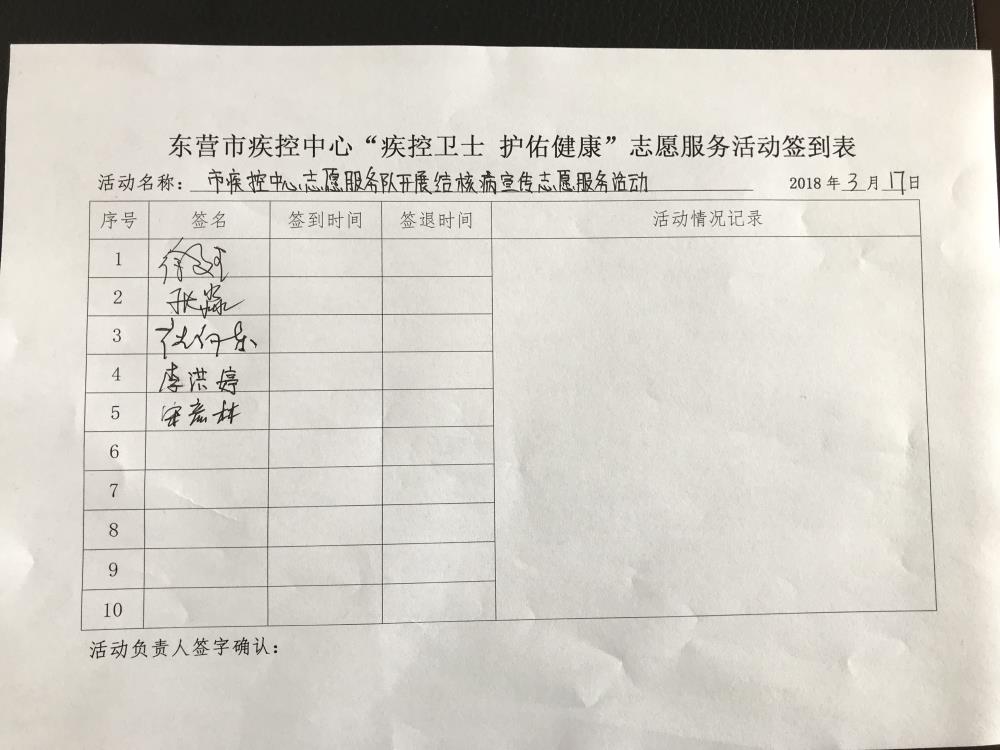 东营市疾控中心“疾控卫士 护佑健康”志愿服务活动签到表
活动名称：市疾控中心志愿服务队开展结核病宣传志愿服务活动 2018年3月17日
序号 签名 签到时间 签退时间 活动情况记录
1 徐
2 张淼
3 向东
4 李洪婷
5 宋彦林
6
7
8
9
10
活动负责人签字确认：